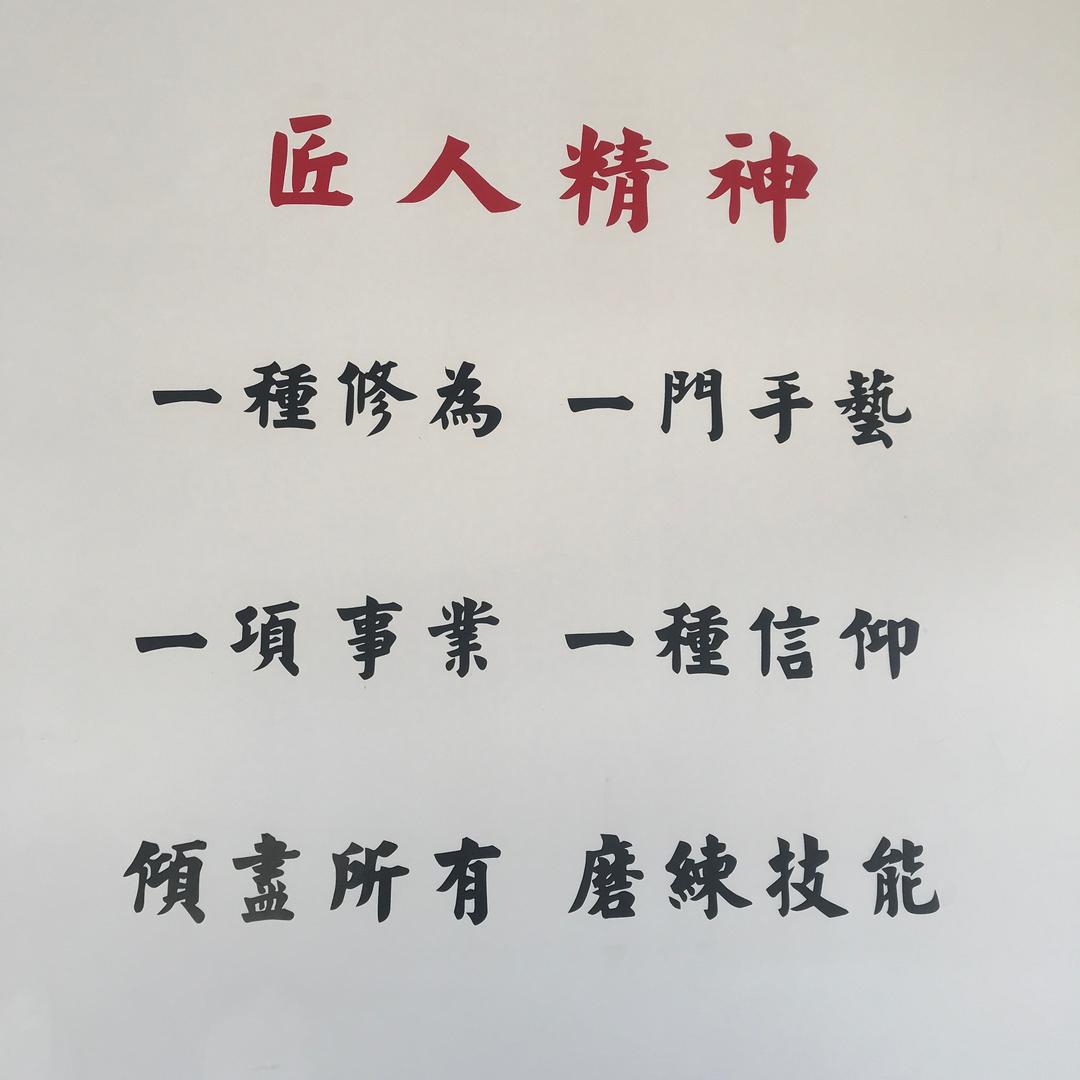 匠人精神
一種修為 一門手藝
一項事業 一種信仰
傾盡所有 磨練技能